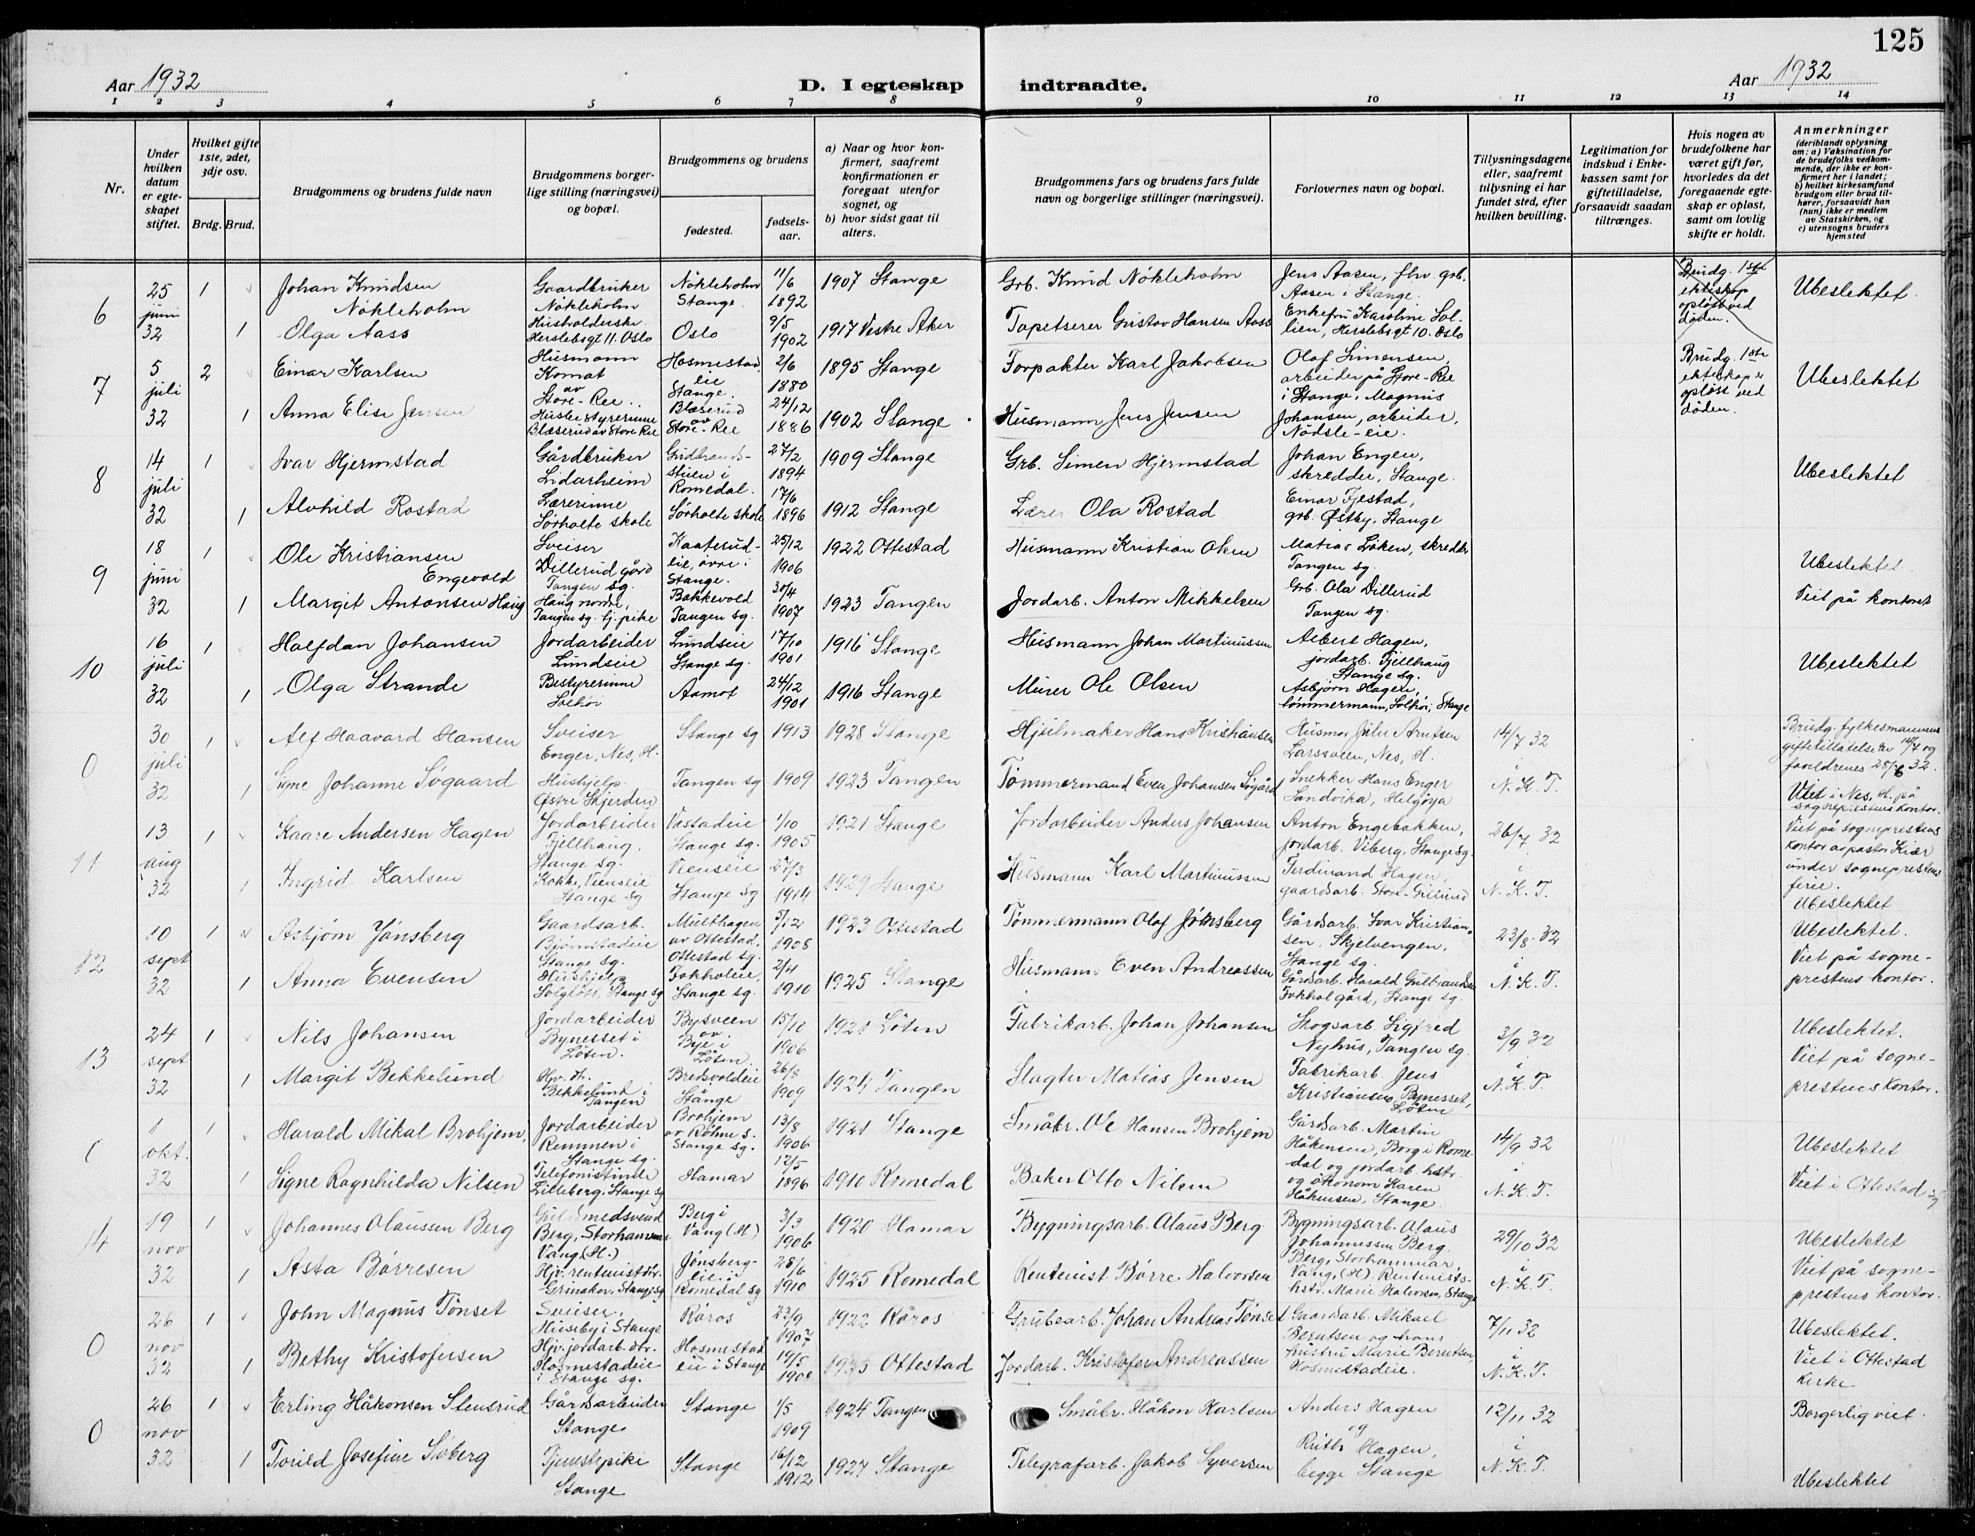 125
Aar 1932
D. I egteskap indtraadte.
Aar 1932
1 2 3 4 5 6 7 8 9 10 11 12 13 14
Nr.
Under hvilken datum er egteskapet stiftet.
Hvilket gifte 1ste, 2det, 3dje osv.
Brdg. Brud.
Brudgommens og brudens fulde navn
Brudgommens borgerlige stilling (næringsvei) og bopæl.
Brudgommens og brudens
fødested.
fødselsaar.
a) Naar og hvor konfirmert, saafremt konfirmationen er foregaat utenfor sognet, og
b) hvor sidst gaat til alters.
Brudgommens fars og brudens fars fulde navn og borgerlige stillinger (næringsvei).
Forlovernes navn og bopæl.
Tillysningsdagene eller, saafremt tillysning ei har fundet sted, efter hvilken bevilling.
Legitimation for indskud i Enkekassen samt for giftetilladelse, forsaavidt saadan tiltrænges.
Hvis nogen av brudefolkene har været gift før, hvorledes da det foregaaende egteskap er opløst, samt om lovlig skifte er holdt.
Anmerkninger
(deriblandt oplysning om: a) Vaksination for de brudefolks vedkommende, der ikke er konfirmert her i landet;
b) hvilket kirkesamfund brudgom eller brud tilhører, forsaavidt han (hun) ikke er medlem av Statskirken, og
c) utensogns bruders hjemsted
6 25 juni 32
1 Johan Knudsen Nökleholm
Gaardbruker Nökleholm
Nökleholm Stange
11/6 1892
1907 Stange
Grb. Knud Nökleholm
Jens Aasen, fhv. grb. Aasen i Stange.
Brudg. 1ste ekteskap opløst ved døden.
Ubeslektet.
1 Olga Aass
Husholderske Herslebsgt 11. Oslo
Oslo
9/5 1902
1917 Vestre Aker
Tapetserer Gustav Hansen Aass
Enkefru Karoline Sollien, Herslebsgt 10. Oslo
7 5 juli 32
2 Einar Karlsen
Husmann Komat av Store-Ree.
Hosmestadeie Stange.
2/6 1880
1895 Stange
Forpakter Karl Jakobsen
Olaf Simensen, arbeider på Store-Ree i Stange, Magnus Johansen, arbeider, Nödsle-eie.
Brudg. 1ste ekteskap er opløst ved døden.
Ubeslektet
1 Anna Elise Jensen
Husbestyrerinne Blæserud av Store Ree
Blæserud av Store-Ree
24/12 1886
1902 Stange
Husmann Jens Jensen
8 14 juli 32
1 Ivar Hjermstad
Gårdbruker Lidarheim
Gudbrandsstuen i Romedal.
27/2 1894
1909 Stange
Grb. Simen Hjermstad
Johan Engen, skredder, Stange.
Ubeslektet
1 Alvhild Rostad
Lærerinne Sörholte skole
Sörholte skole
17/6 1896
1912 Stange
Lærer Ola Rostad
Einar Fjestad, grb. Østby, Stange
9 18 juni 32
1 Ole Kristiansen Engevold
Sveiser Dillerud gård Tangen sg.
Kaaterudeie, øvre i Stange.
25/12 1906
1922 Ottestad
Husmann Kristian Olsen
Matias Löken, skredder Tangen sg.
Ubeslektet.
1 Margit Antonsen Haug
Haug nordre, Tangen sg. tj. pike
Bakkevold Tangen sg.
30/4 1907
1923 Tangen
Jordarb. Anton Mikkelsen
Grb. Ola Dillerud Tangen sg.
Viet på kontoret
10 16 juli 32
1 Halfdan Johansen
Jordarbeider Lundseie
Lundseie Stange sg.
17/10 1901
1916 Stange
Husmann Johan Martinussen
Albert Hagen, jordarb. Fjellhaug Stange sg.
Ubeslektet
1 Olga Strande
Bestyrerinne Solhöi
Aamot
24/12 1901
1916 Stange
Murer Ole Olsen
Asbjörn Hagen, tömmermann, Solhöi, Stange
0 30 juli 32
1 Alf Haavard Hansen
Sveiser Enger, Nes, H.
Stange sg
1913
1928 Stange
Hjulmaker Hans Kristiansen
Husmor Julie Arntsen Larssveen, Nes, H.
14/7 32 i N. K. T.
Brudg. fylkesmannens giftetillatelse av 14/7 og foreldrenes 28/6 32.
Viet i Nes, H. på sogneprestens kontor.
1 Signe Johanne Sögaard
Hushjelp. Østre Skjerden
Tangen sg
1909
1923 Tangen
Tömmermand Even Johansen Sögård
Snekker Hans Enger Sandvika, Helgöya
11 13 aug 32
1 Kaare Andersen Hagen
Jordarbeider Fjellhaug. Stange sg.
Vostadeie Stange sg.
1/10 1905
1921 Stange
Jordarbeider Anders Johansen
Anton Engebakken, Jordarb. Viberg, Stange sg.
26/7 32 i N. K. T.
Viet på sogneprestens kontor av pastor Kiær under sogneprestens ferie. Ubeslektet
1 Ingrid Karlsen
Kokke, Veenseie Stange sg
Veenseie Stange sg
27/3 1914
1929 Stange
Husmann Karl Martinussen
Ferdinand Hagen, gaardsarb. Store-Gillund
12 10 sept 32
1 Asbjørn Jönsberg
Gaardsarb. Björnstadeie Stange sg.
Multhagen av Ottestad, Ottestad sg.
5/12 1908
1923 Ottestad
Tömmermann Olaf Jönsberg
Gårdsarb. Ivar Kristiansen. Skjelvengen, Stange sg.
23/8-32 i N. K. T.
Ubeslektet.
Viet på sogneprestens kontor.
1 Anna Evensen
Hushjelp Solgløtt, Stange sg
Fokholeie, Stange sg.
2/4 1910
1925 Stange
Husmann Even Andreassen
Gårdsarb. Harald Gulbrandsen Fokhol gård, Stange sg.
13 24 sept 32
1 Nils Johansen
Jordarbeider Bynesset i Löten.
Bysveen av Bye i Löten
15/10 1906
1921 Löten
Fabrikarb. Johan Johansen
Skogsarb. Sigfred Nyhus, Tangen sg.
3/9 32 i N. K. T.
Ubeslektet.
Viet på sogneprestens kontor.
1 Margit Bekkelund
Hjv. dtr. Bekkelund i Tangen
Bredvoldeie i Stange
26/8 1909
1924 Tangen
Slagter Matias Jensen
Fabrikarb. Jens Kristiansen Bynesset, Löten
0 1 okt. 32
1 Harald Mikal Brohjem,
Jordarbeider Remmen i Stange sg.
Brohjem av Röhne s. Stange sg.
13/8 1906
1921 Stange
Småbr. Ole Hansen Brohjem
Gårdsarb. Martin Håkensen, Borg i Romedal og jordarb. hstr. og ökonom Karen Håkensen, Stange
14/9 32 i N. K. T.
Ubeslektet
Viet i Ottestad
1 Signe Ragnhilda Nilsen
Telefonistinde Lilleberg, Stange sg
Hamar
12/5 1896
1910 Romedal
Baker Otto Nilsen
14 19 nov 32
1 Johannes Olaussen Berg
Gullsmedsvend Berg, Storhammer Vang (H.)
Berg i Vang (H)
3/3 1906
1920 Hamar
Bygningsarb. Olaus Berg
Bygningsarb. Olaus Johannessen Berg. Berg, Storhammar, Vang, (H). Rentenists hstr. Marie Halvorsen, Stange
29/10 32 i N. K. T.
Ubeslektet
Viet på sogneprestens kontor.
1 Asta Börresen
Hjv. rentenist dtr. Grinaker, Stange sg
Jönsbergeie i Romedal sg
28/6 1910
1925 Romedal
Rentenist Börre Halvorsen
0 26 nov 32
1 John Magnus Tönset
Sveiser. Huseby i Stange
Röros
23/9 1907
1922 Röros
Grubearb. Johan Andreas Tönset
Gaardarb. Mikael Berntsen og hans hustru Marie Berntsen, Hosmestadeie.
7/11 32 i N. K. T.
Ubeslektet.
Viet i Ottestad kirke
1 Bethy Kristofersen
Hjv. jordarb. dtr. Hosmestadeie i Stange sg.
Hosmestadeie i Stange
19/5 1908
Ottestad
Jordarb. Kristofer Andreassen
0 26 nov 32
1 Erling Håkonsen Stensrud
Gårdsarbeider Stange
Stange
1/5 1909
1924 Tangen
Småbr. Håkon Karlsen
Anders Hagen og Ruth Hagen, begge Stange
12/11 32 i N. K. T.
Borgerlig viet.
Ubeslektet
1 Torild Josefine Söberg
Tjenestepike Stange
Stange
16/12 1912
1927 Stange
Telegrafarb. Jakob Syversen